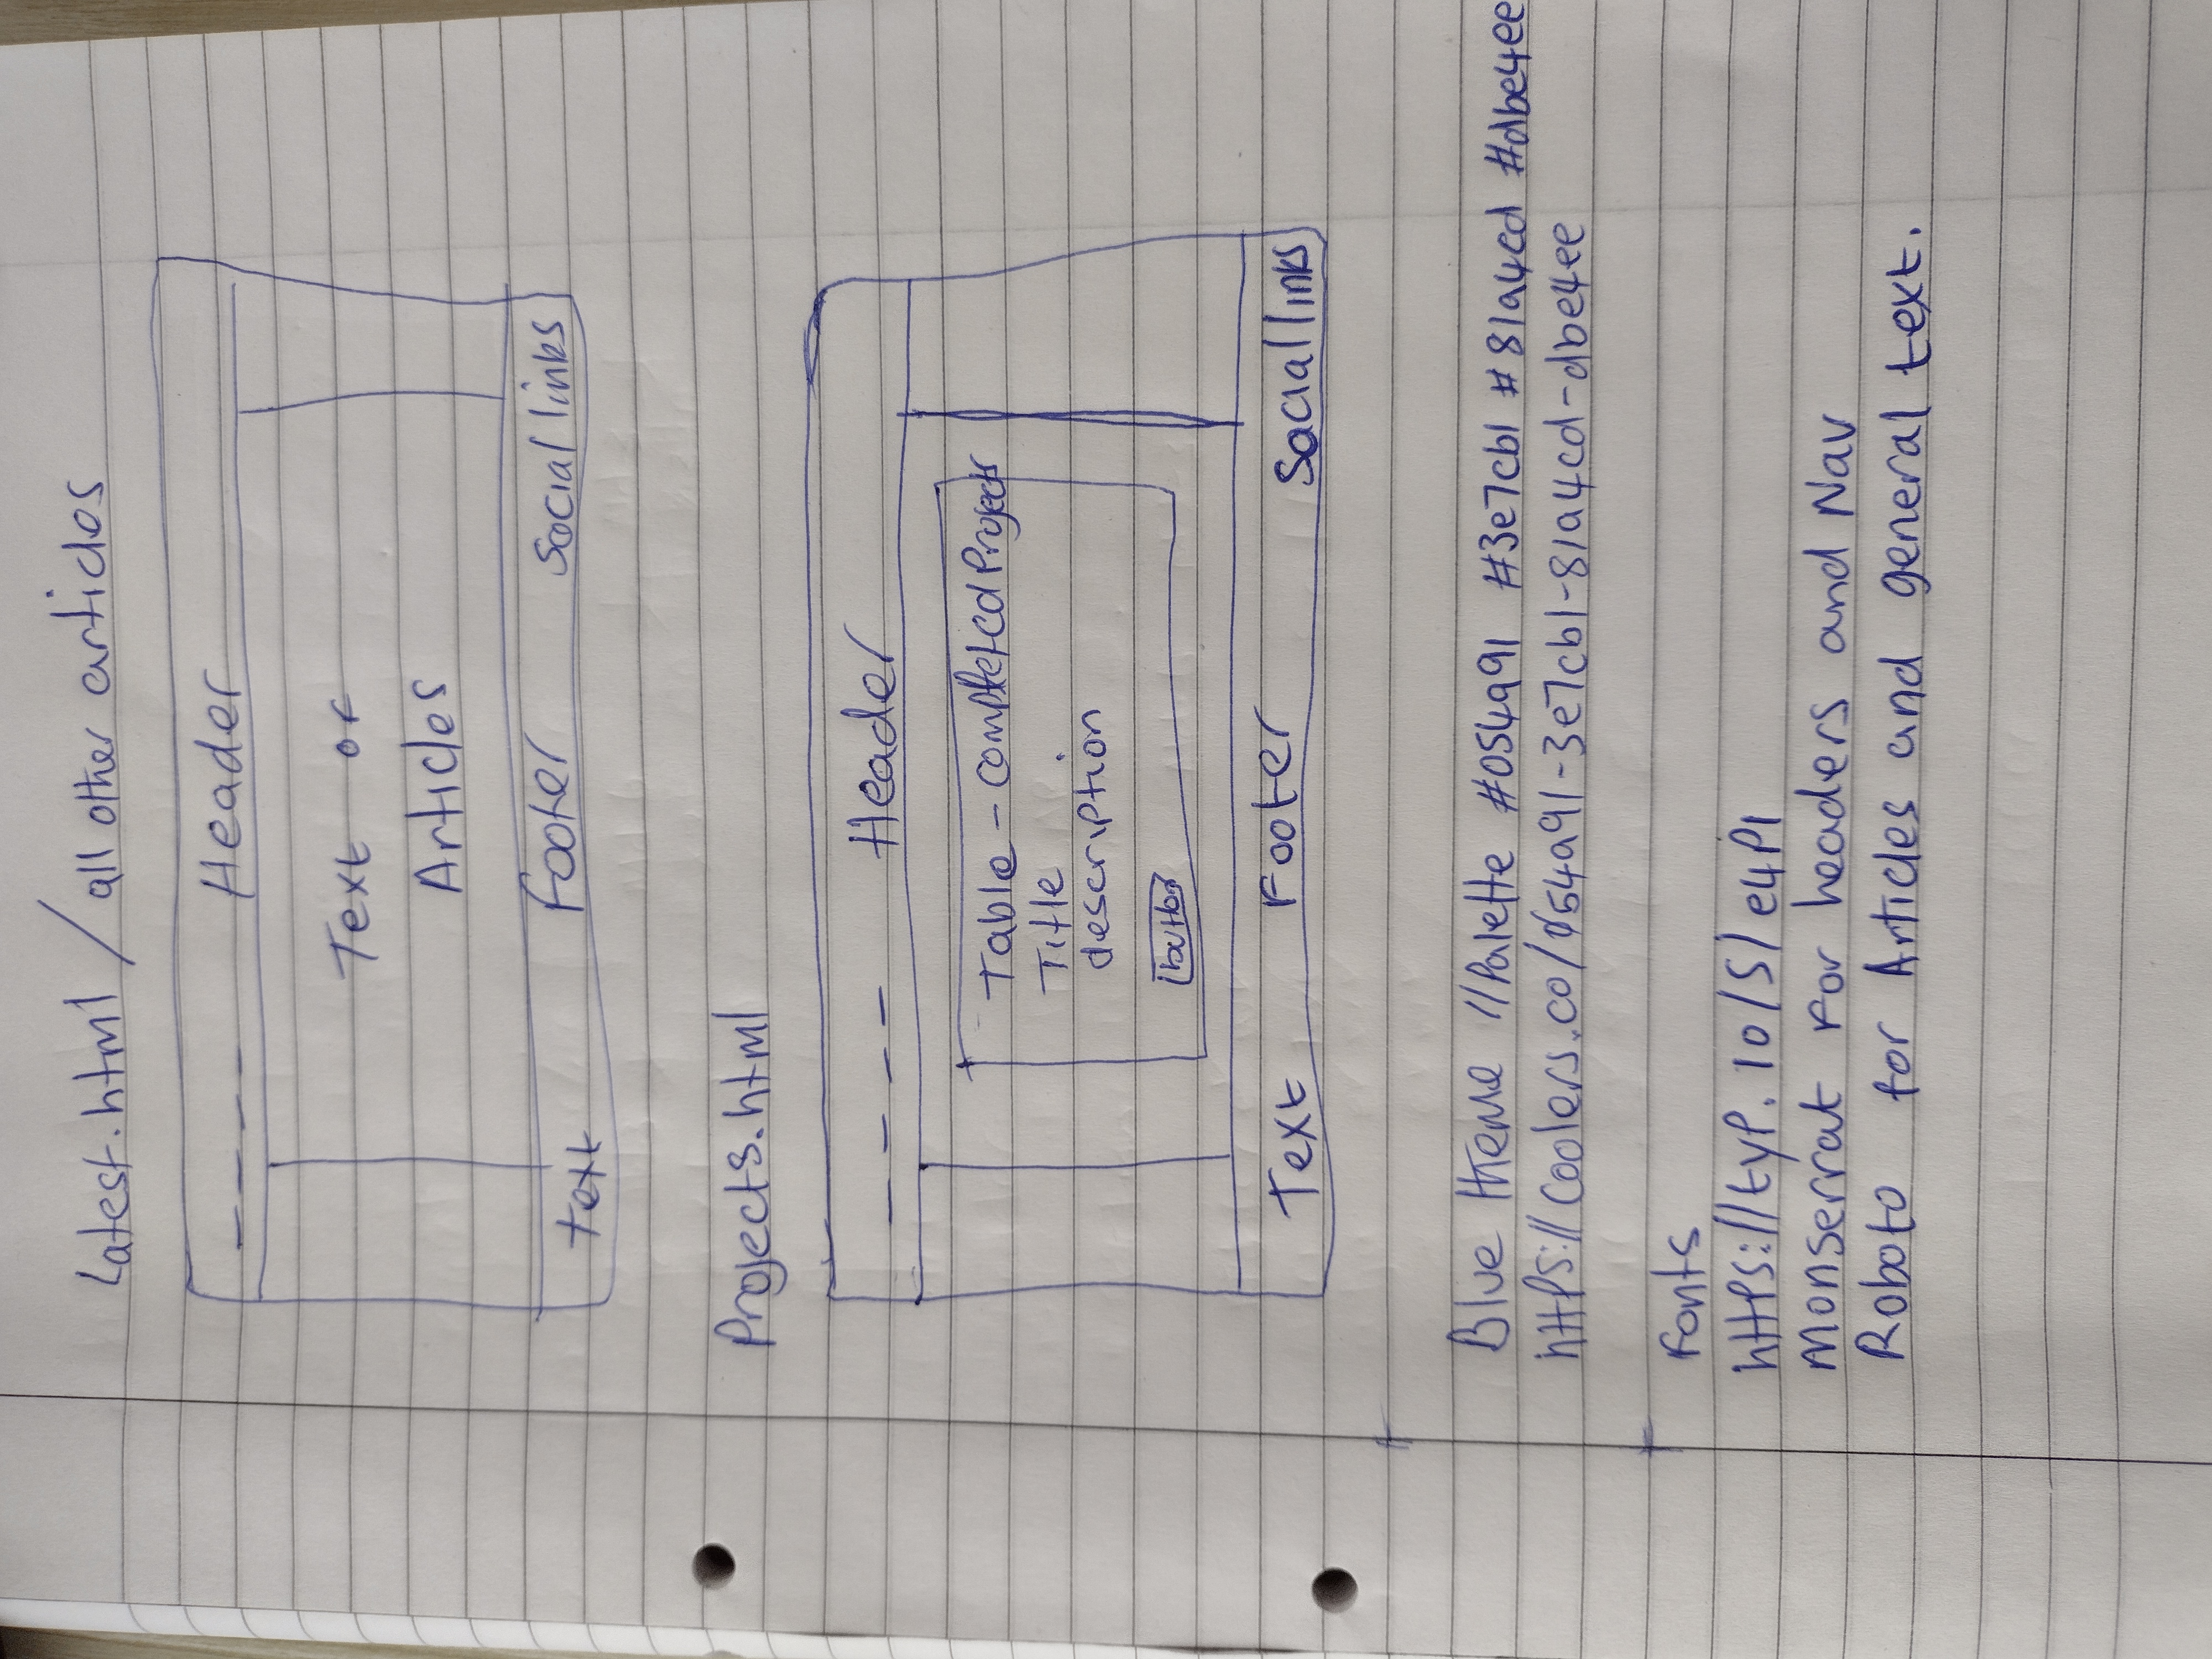 Latest.html / all other articles
---- Header
Text or
Articles
Text Footer Social links
Projects.html
---- Header
Table - completed Projects
Title
description
button
Text Footer Social links
Blue theme //Palette #054a91 #3e7cb1 #81a4cd #dbe4ee
https://coolers.co/054a91-3e7cb1-81a4cd-dbe4ee
Fonts
https://typ.io/s/e4pi
Monserrat for headers and Nav
Roboto for Articles and general text.